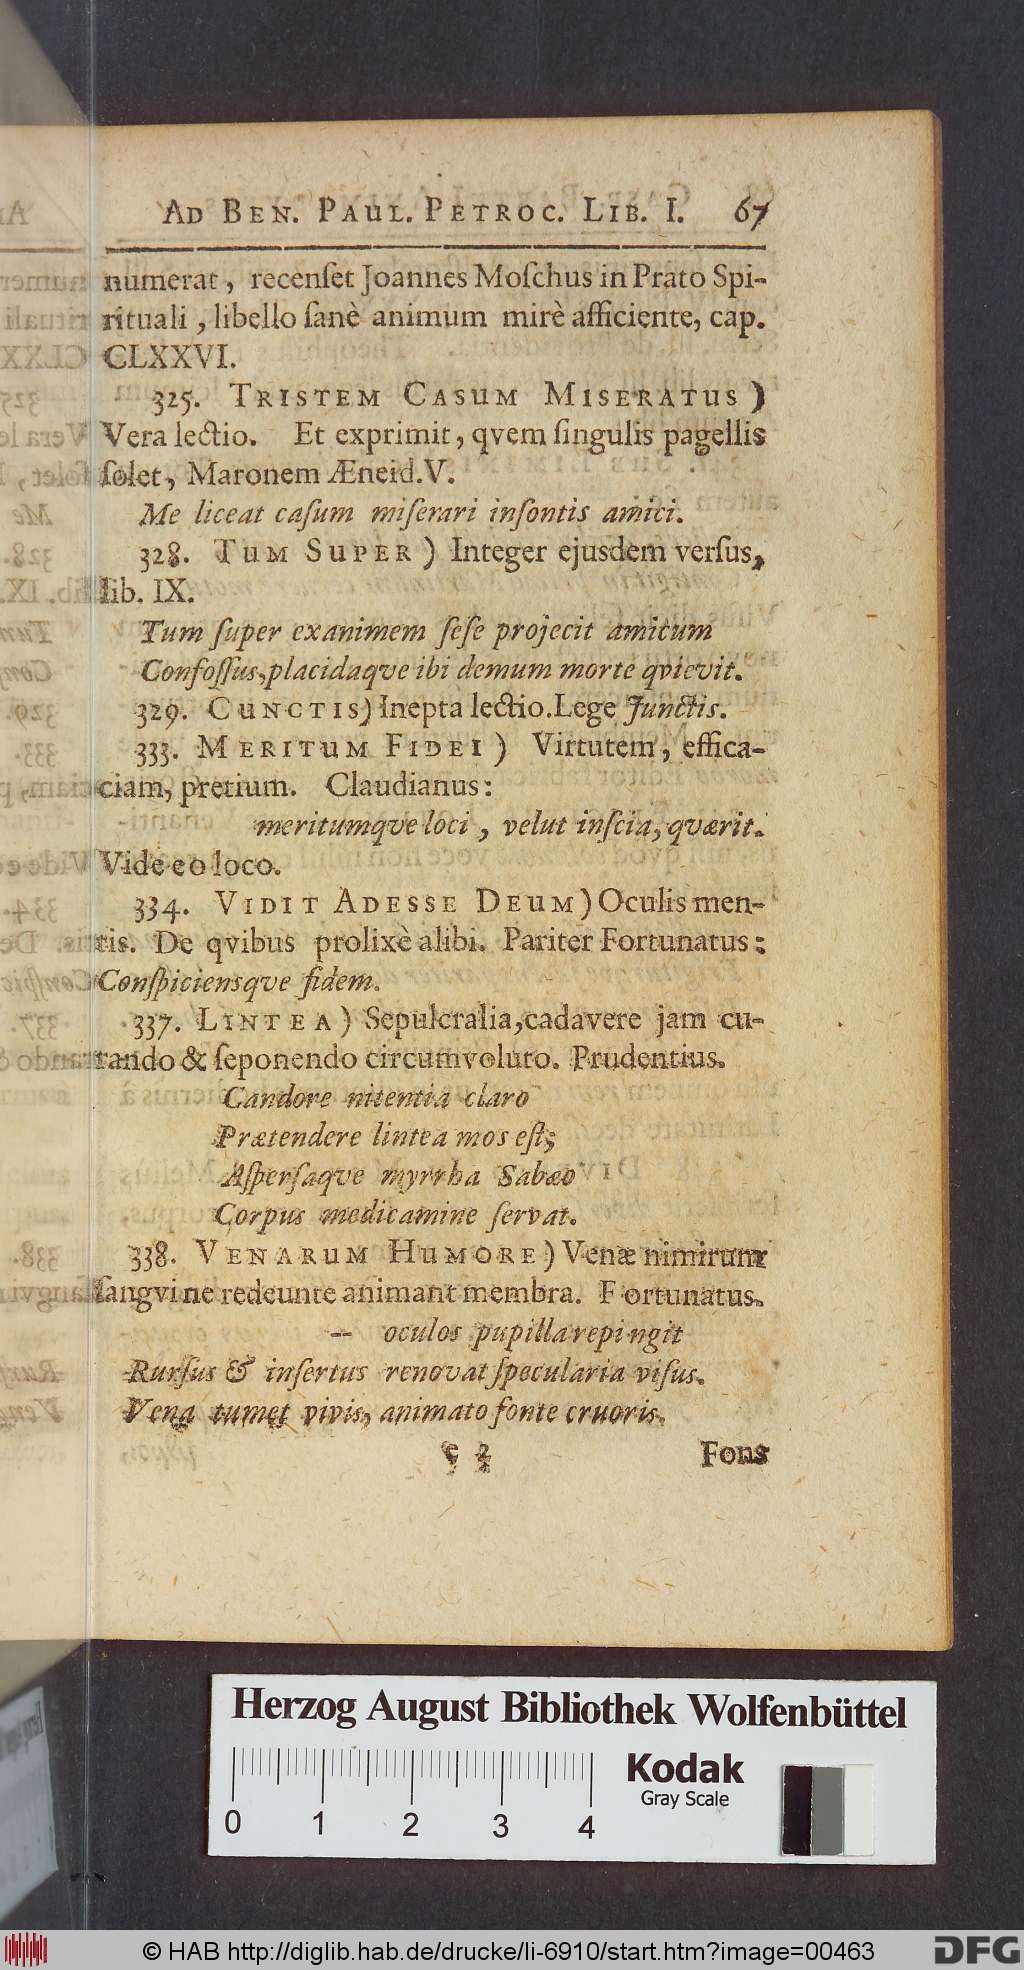 AD BEN. PAUL. PETROC. LIB. I. 67
numerat, recenſet Joannes Moſchus in Prato Spi-
rituali, libello ſanè animum mirè afficiente, cap.
CLXXVI.
325. TRISTEM CASUM MISERATUS)
Vera lectio. Et exprimit, qvem ſingulis pagellis
ſolet, Maronem Æneid. V.
Me liceat caſum miſerari inſontis amici.
328. TUM SUPER) Integer ejusdem verſus,
lib. IX.
Tum ſuper exanimem ſeſe projecit amicum
Confoſſus, placidaqve ibi demum morte qvievit.
329. CUNCTIS) Inepta lectio. Lege Junctis.
333. MERITUM FIDEI) Virtutem, effica-
ciam, pretium. Claudianus:
meritumqve loci, velut inſcia, qværit.
Vide eo loco.
334. VIDIT ADESSE DEUM) Oculis men-
tis. De qvibus prolixè alibi. Pariter Fortunatus:
Conſpiciensqve fidem.
337. LINTEA) Sepulcralia, cadavere jam cu-
rando & ſeponendo circumvoluto. Prudentius.
Candore nitentia claro
Prætendere lintea mos eſt;
Aſperſaqve myrrha Sabæo
Corpus medicamine ſervat.
338. VENARUM HUMORE) Venæ nimirum
ſangvine redeunte animant membra. Fortunatus.
-- oculos pupilla repingit
Rurſus & inſertus renovat ſpecularia viſus.
Vena tumet vivis, animato fonte cruoris.
ç 2 Fons
Herzog August Bibliothek Wolfenbüttel
Kodak
Gray Scale
0 1 2 3 4
© HAB http://diglib.hab.de/drucke/li-6910/start.htm?image=00463
DFG